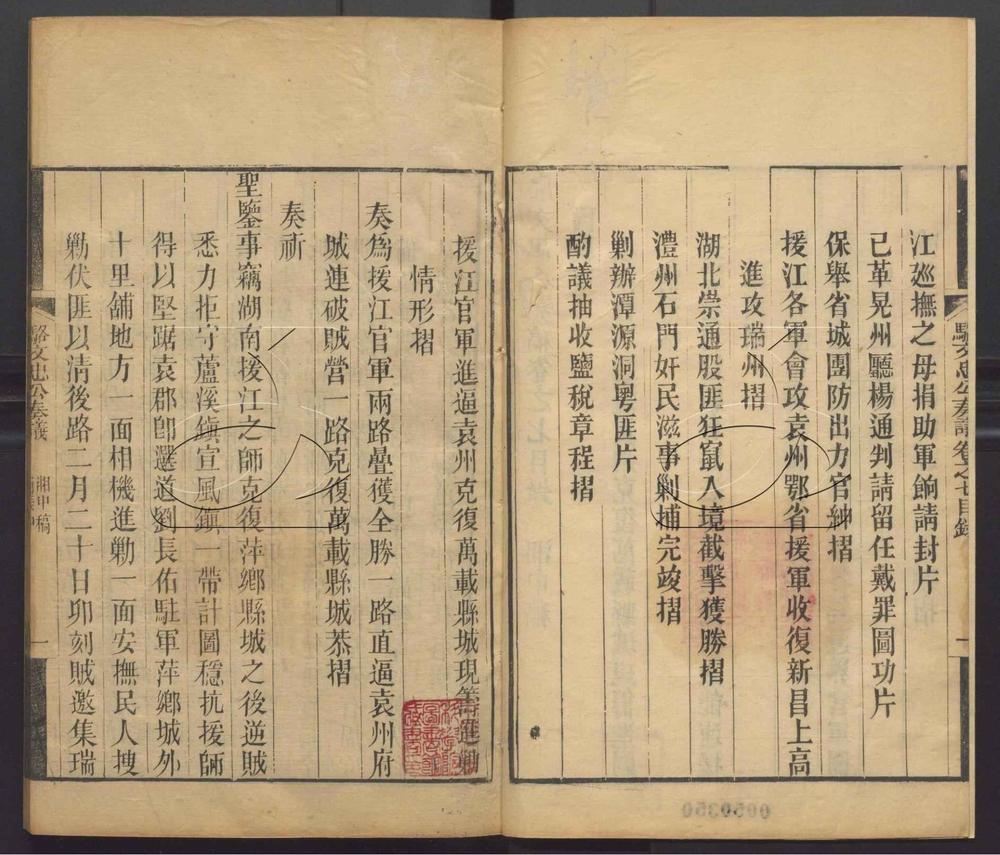 江巡撫之母捐助軍餉請封片
已革晃州廳楊通判請留任戴罪圖功片
保舉省城團防出力官紳摺
援江各軍會攻袁州鄂省援軍收復新昌上高
進攻瑞州摺
湖北崇通股匪狂竄入境截擊獲勝摺
澧州石門奸民滋事剿捕完竣摺
剿辦潭源洞粵匪片
酌議抽收鹽稅章程摺
駱文忠公奏議卷之七目錄
一
援江官軍進逼袁州克復萬載縣城現籌進勦
情形摺
奏為援江官軍兩路疊獲全勝一路直逼袁州府
城連破賊營一路克復萬載縣城恭摺
奏祈
聖鑒事竊湖南援江之師克復萍鄉縣城之後逆賊
悉力拒守蘆溪鎮宣風鎮一帶計圖穩抗援師
得以堅踞袁郡卽選道劉長佑駐軍萍鄉城外
十里舖地方一面相機進勦一面安撫民人搜
勦伏匪以清後路二月二十日卯刻賊邀集瑞
駱文忠公奏議
湘中稿
一
0050350